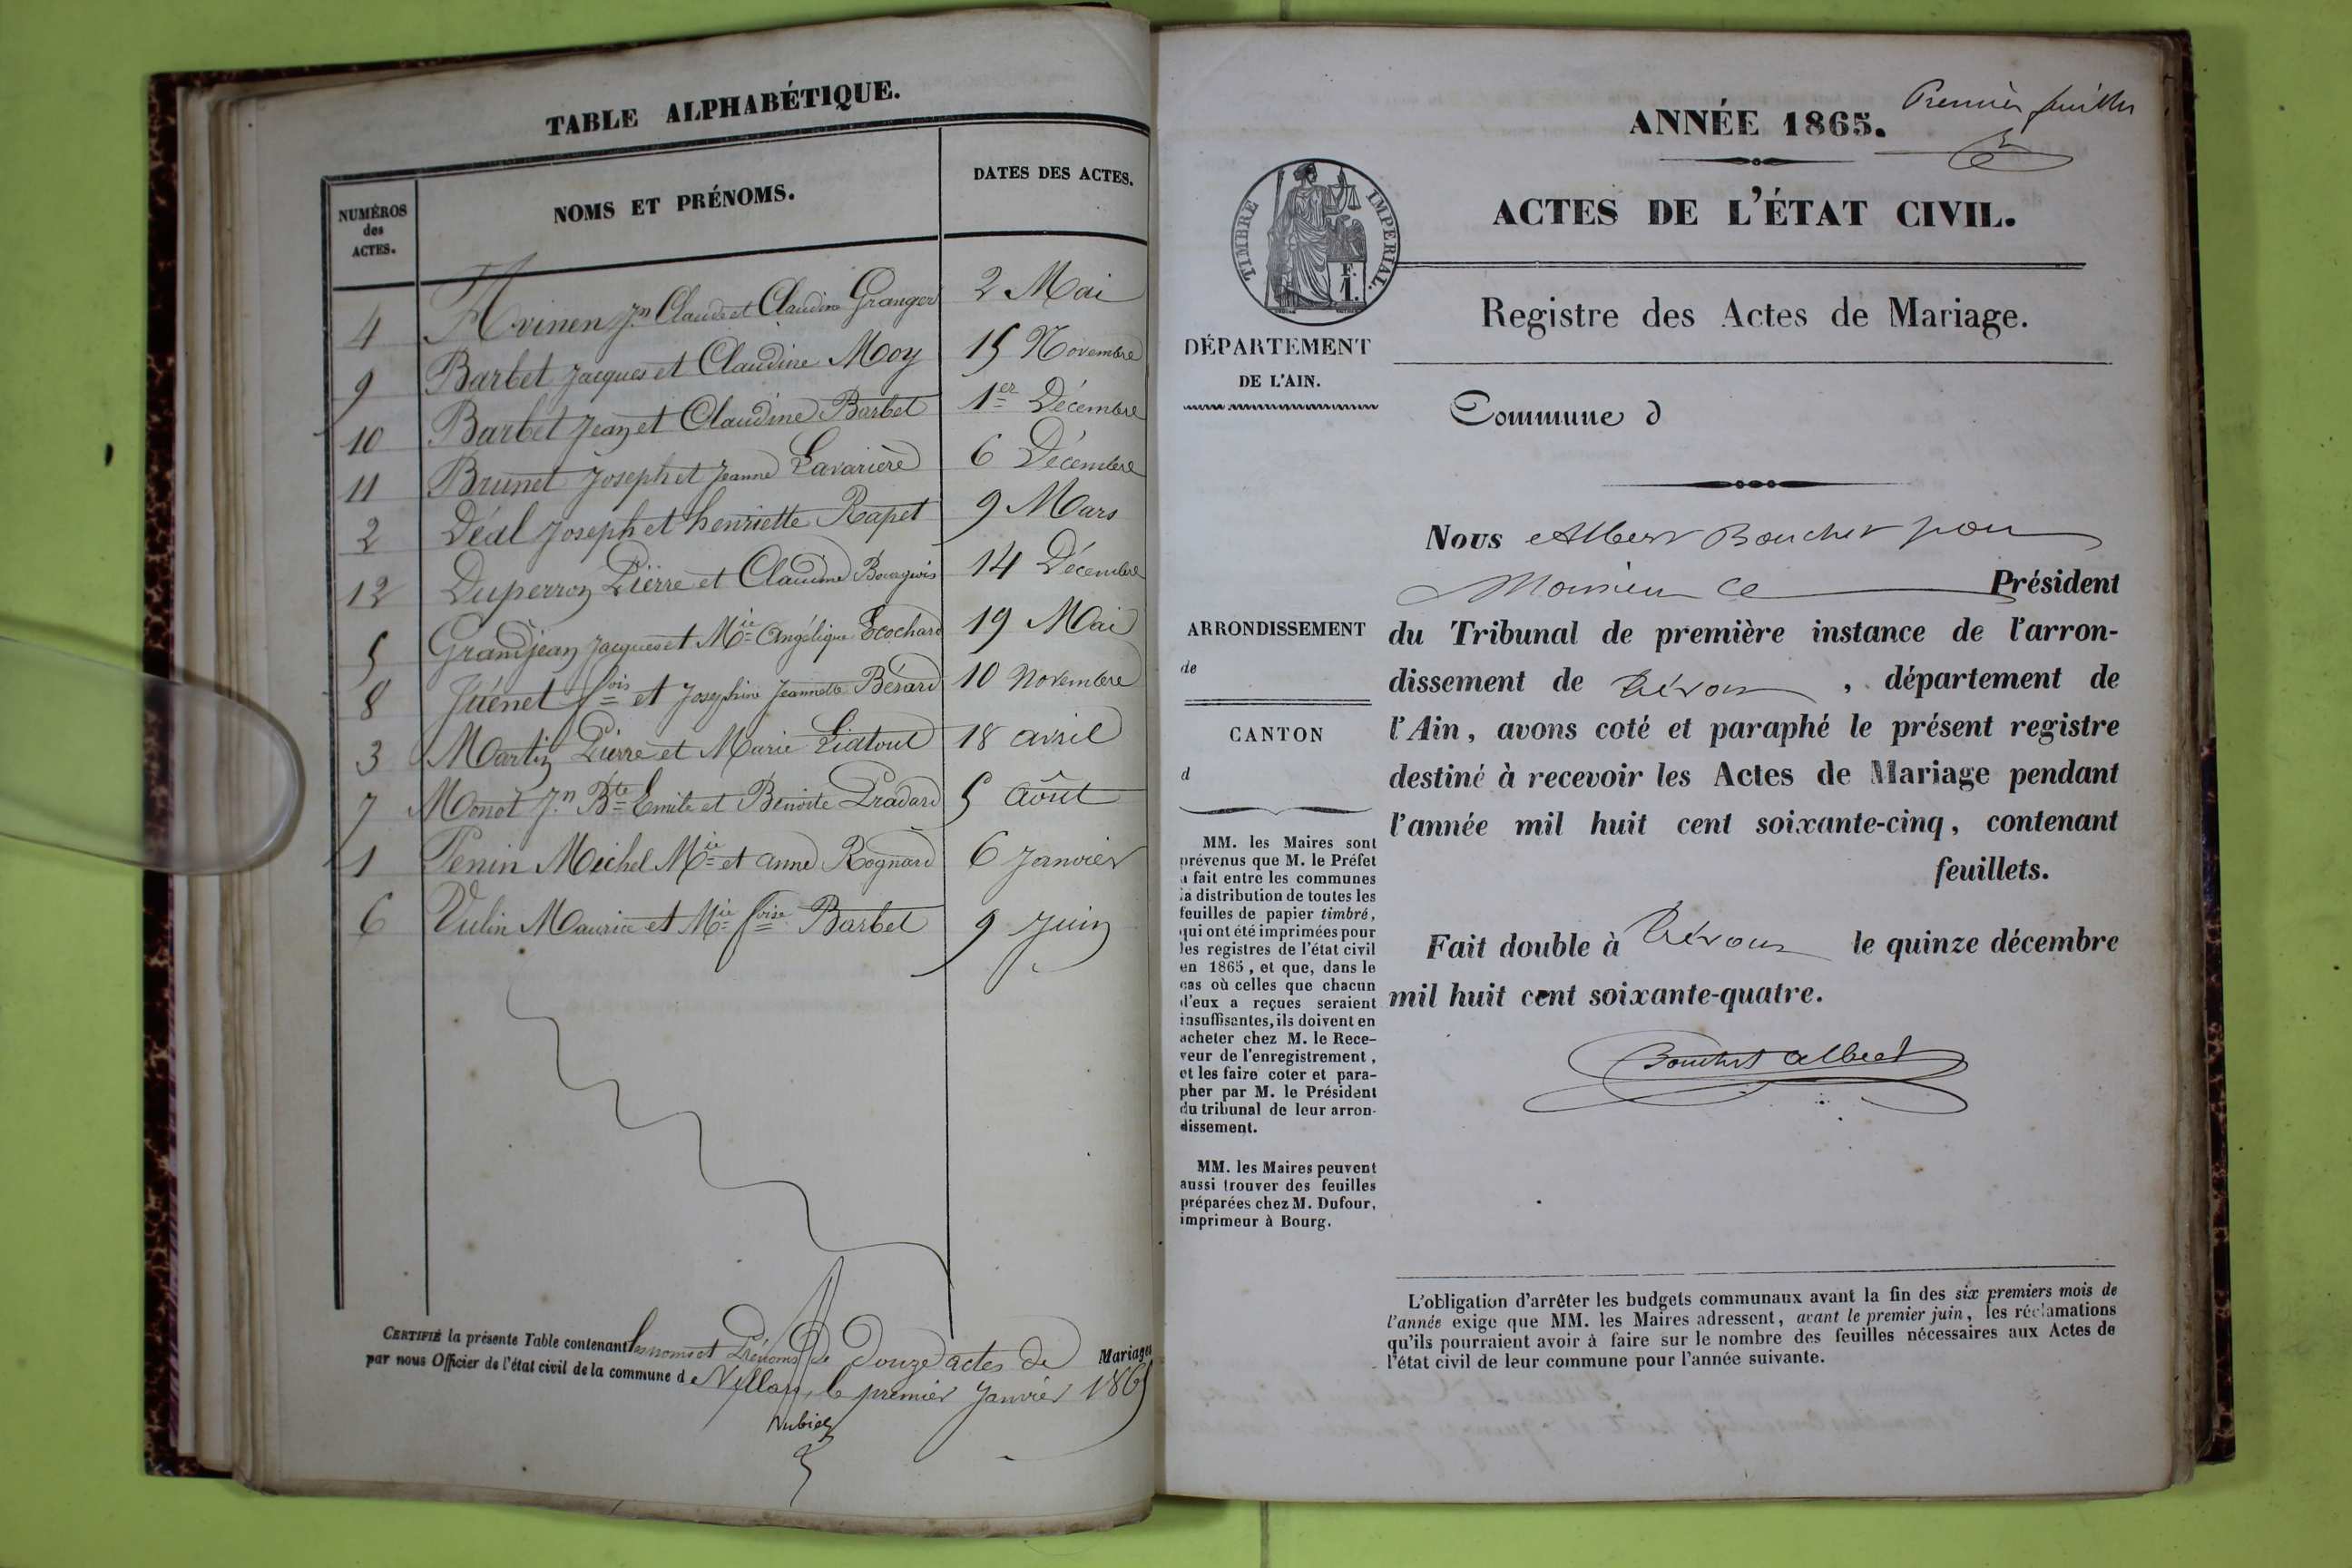 TABLE ALPHABÉTIQUE.
NUMÉROS
des
ACTES.
NOMS ET PRÉNOMS.
DATES DES ACTES.
4 Avinen Jn Claude et Claudine Granger 2 Mai
9 Barbet Jacques et Claudine Moy 15 Novembre
10 Barbet Jean et Claudine Barbet 1er Décembre
11 Brunet Joseph et Jeanne Lavarière 6 Décembre
2 Déal Joseph et henriette Rapet 9 Mars
12 Duperron Pierre et Claudine Bourgeois 14 Décembre
5 Grandjean Jacques et Mie Angélique Ecochard 19 Mai
8 Juénet fois et Josephine Jeannette Bérard 10 Novembre
3 Martin Pierre et Marie Liatout 18 avril
7 Monot Jn Bte Emile et Benoite Pradard 5 Août
1 Penin Michel Mie et anne Rognard 6 Janvier
6 Vulin Maurice et Mie foise Barbet 9 Juin
CERTIFIÉ la présente Table contenant les noms et Prénoms de Douze actes de Mariages
par nous Officier de l'état civil de la commune de Villars, le premier Janvier 1865
Premier feuillet
ANNÉE 1865.
ACTES DE L'ÉTAT CIVIL.
TIMBRE IMPERIAL.
F.
1.
Registre des Actes de Mariage.
DÉPARTEMENT
DE L'AIN.
Commune d
Nous Albert Bouchet pour
Monsieur le Président
ARRONDISSEMENT
de
CANTON
d
du Tribunal de première instance de l'arron-
dissement de Trévoux, département de
l'Ain, avons coté et paraphé le présent registre
destiné à recevoir les Actes de Mariage pendant
l'année mil huit cent soixante-cinq, contenant
feuillets.
Fait double à Trévoux le quinze décembre
mil huit cent soixante-quatre.
Bouchet Albert
MM. les Maires sont
prévenus que M. le Préfet
a fait entre les communes
la distribution de toutes les
feuilles de papier timbré,
qui ont été imprimées pour
les registres de l'état civil
en 1865, et que, dans le
cas où celles que chacun
d'eux a reçues seraient
insuffisantes, ils doivent en
acheter chez M. le Rece-
veur de l'enregistrement,
et les faire coter et para-
pher par M. le Président
du tribunal de leur arron-
dissement.
MM. les Maires peuvent
aussi trouver des feuilles
préparées chez M. Dufour,
imprimeur à Bourg.
L'obligation d'arrêter les budgets communaux avant la fin des six premiers mois de
l'année exige que MM. les Maires adressent, avant le premier juin, les réclamations
qu'ils pourraient avoir à faire sur le nombre des feuilles nécessaires aux Actes de
l'état civil de leur commune pour l'année suivante.